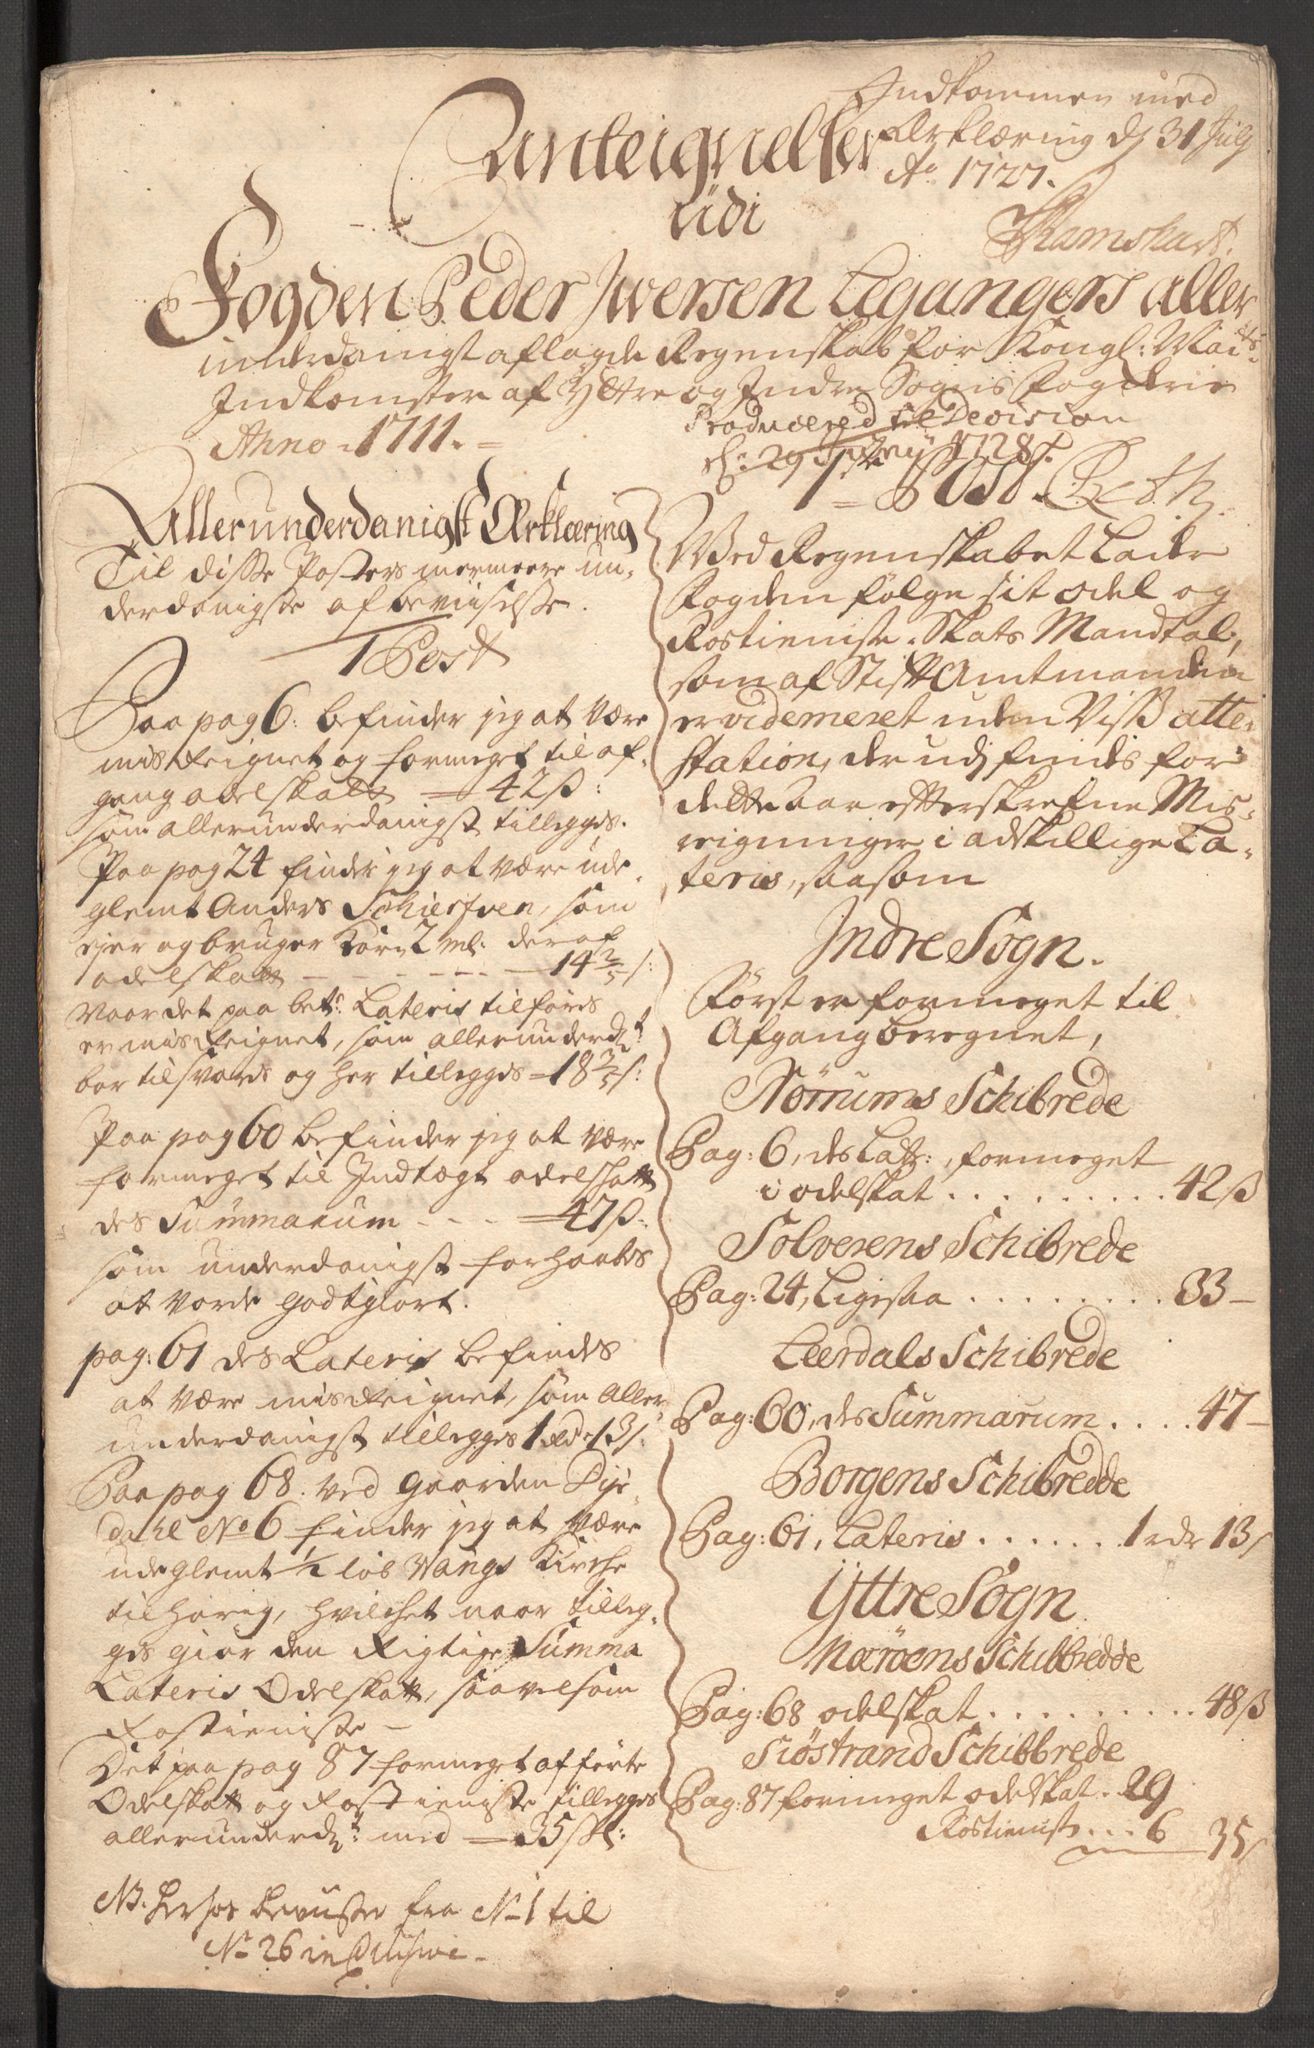 Indkommen med
Erklæring d 31 July
Ao 1727.
Ramshart
Anteignelser
udi
Fogden Peder Iwersen Legangers aller
underdanigst aflagde Regenskab for Kongl: Maits
Indkomster af Yttre og Indre Sogns Fogderie
Anno 1711.
Produceret til Decision
d: 29 1728.
Allerunderdanigst Erklæring
Til disse Posters nermere un-
derdanigste afbeviiselse.
1 Post
Paa pag 6: befinder jeg at være
misreignet og formeget til af-
gang odelskatt 42ß:
som allerunderdanigst tillegges.
Paa pag 24 finder jeg at være ude-
glemt Anders Schierfven, som
ejer og bruger Korn 2 ml: deraf
odelskatt - - - - - 14 2/5 s:
Naar det paa bete Lateris tilføres
er misreignet, som allerunderdt
bør tilsvares og her tillegges 18 3/5 s:
Paa pag 60 befinder jeg at være
formeget til Indtægt odelskatt
des Summarum - - - 47ß:
som underdanigst forhaabes
at vorde godtgiort.
pag: 61 des Lateris befindes
at være misreignet, som aller
underdanigst tillegges 1 rd 13 s:
Paa pag 68. ved gaarden Dyr-
dahl No 6 finder jeg at være
udeglemt 1/2 løb Wangs Kirche
tilhørig, hvilchet naar tilleg-
ges giør den Rigtige Summa
Lateris Odelskatt, saavelsom
Rostieniste -
Det paa pag 87 formeget afførte
Odelskatt og Rostieniste tillegges
allerunderdt med 35 s:
NB. herhos bevister fra No 1 til
No 26 inclusive
1te Post.
Ved Regenskabet Lader
Fogden følge sit odel og
Rostieniste-Skats Mandtal,
som af Stift Amtmanden
er videmeret uden Viss atte-
station, der udj findes for
dette aar efterskrefne Mis-
reigninger i adskillige La-
teris, saasom
Indre Sogn.
Først er formeget til
Afgang beregnet,
Norums Schibrede
Pag: 6, des Latr:, formeget
i odelskat . . . . . . . . . 42ß
Solverens Schibrede
Pag: 24, Ligesaa . . . . . . . . 33 -
Leerdals Schibrede
Pag: 60, des Summarum . . . . 47 -
Borgens Schibredde
Pag: 61, Lateris . . . . . . . 1 rdr 13 s
Yttre Sogn
Nærøens Schibbredde
Pag: 68 odelskat . . . . . . . . . 48ß
Siøstrand Schibbrede
Pag: 87 formeget odelskat . 29
Rostienist . . . 6 35 s